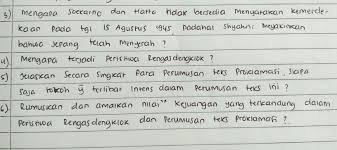 3) mengapa Soekarno dan Hatta tidak bersedia menyatakan kemerde-
kaan pada tgl 15 Agustus 1945 padahal Shyahrir meyakinkan
bahwa Jepang telah menyerah ?
4) Mengapa terjadi Peristiwa Rengasdengklok ?
5) Jelaskan Secara Singkat Para Perumusan teks Proklamasi, Siapa
Saja tokoh yg terlibat intens dalam Perumusan teks ini ?
6). Rumuskan dan amalkan nilai" kejuangan yang terkandung dalam
Peristiwa Rengasdengklok dan Perumusan teks Proklamasi ?